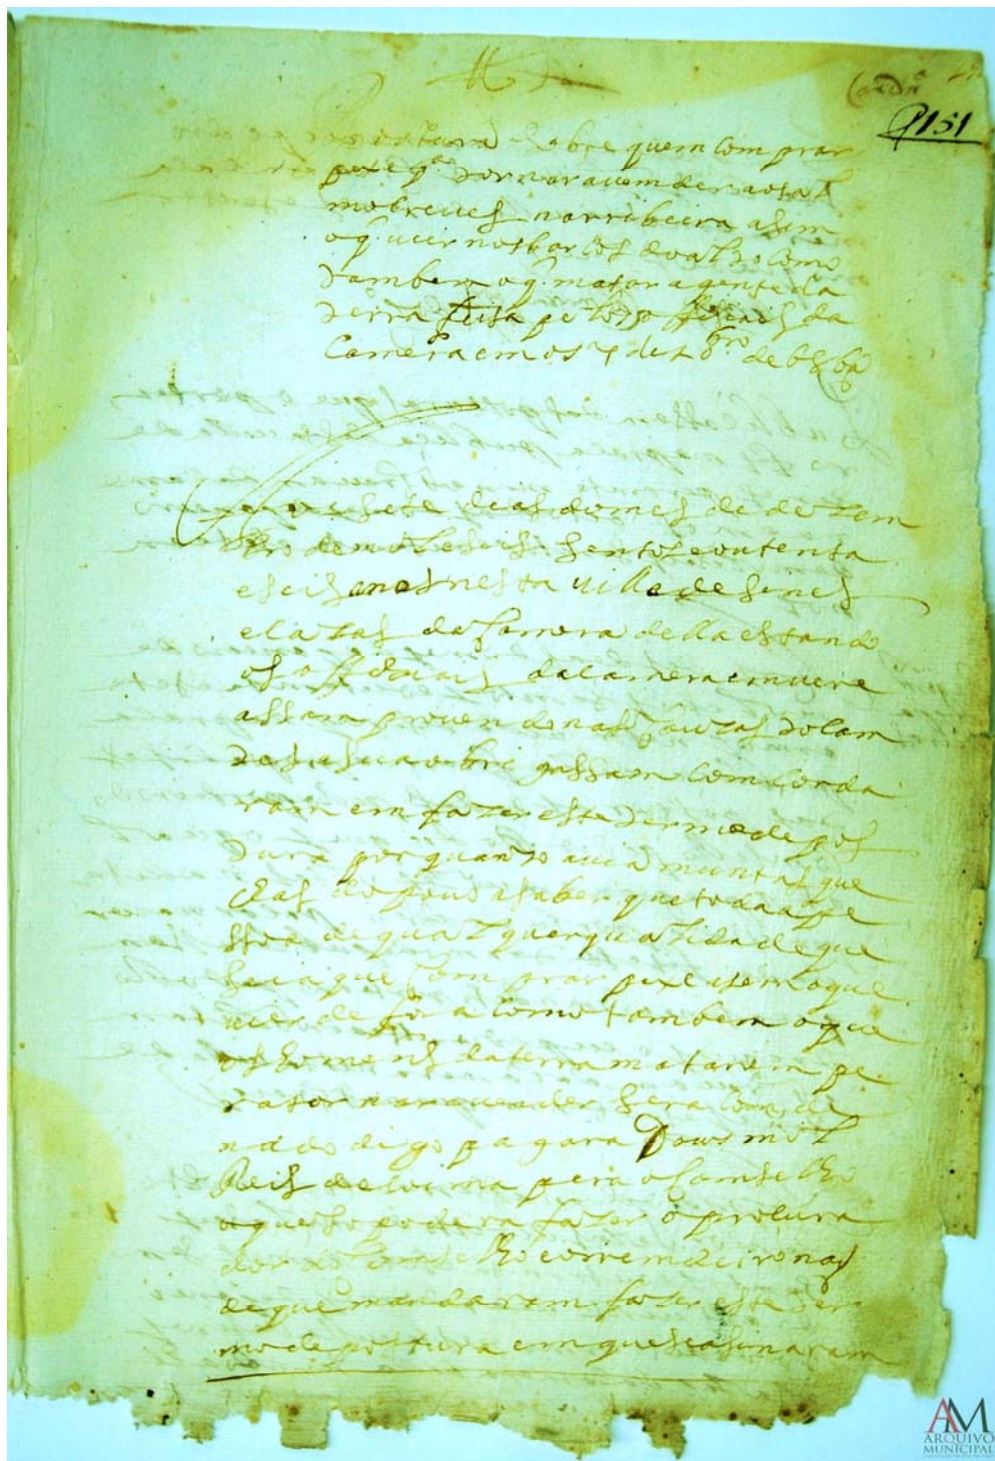 postura sobre quem comprar
peixe q̃ tornar a vender aos al
mocreves na rribeira asim
o q̃ vier nos barcos do alto como
tambem o q̃ matar a gente da
terra feita pelos officiais da
Camera em os 7 de 10bro de 686
Aos sete dias do mes de dezem
bro de mil e seis sentos e outenta
e seis anos nesta villa de Sines
e cazas da Camera della estando
os officiais da camera em vere
assam provendo nas couzas to cam
tes a sua obrigassam comcorda
ram em fazer este termo de pos
tura por quanto avia muntas que
xas do povo a saber que toda a pe
ssoa de qualquer qualidade que
seia que comprar peixe asim o que
vier de fora como tambem o que
os homens da terra matarem pe
ra tornar a vender sera comde
nado digo pagara dous mil
Reis de coima pera o Comselho
o que so podera fazer o procura
dor do Comselho e rremdeiro nas
de que mandaram fazer este ter
mo de postura em que se asinaram
151
AM
ARQUIVO
MUNICIPAL